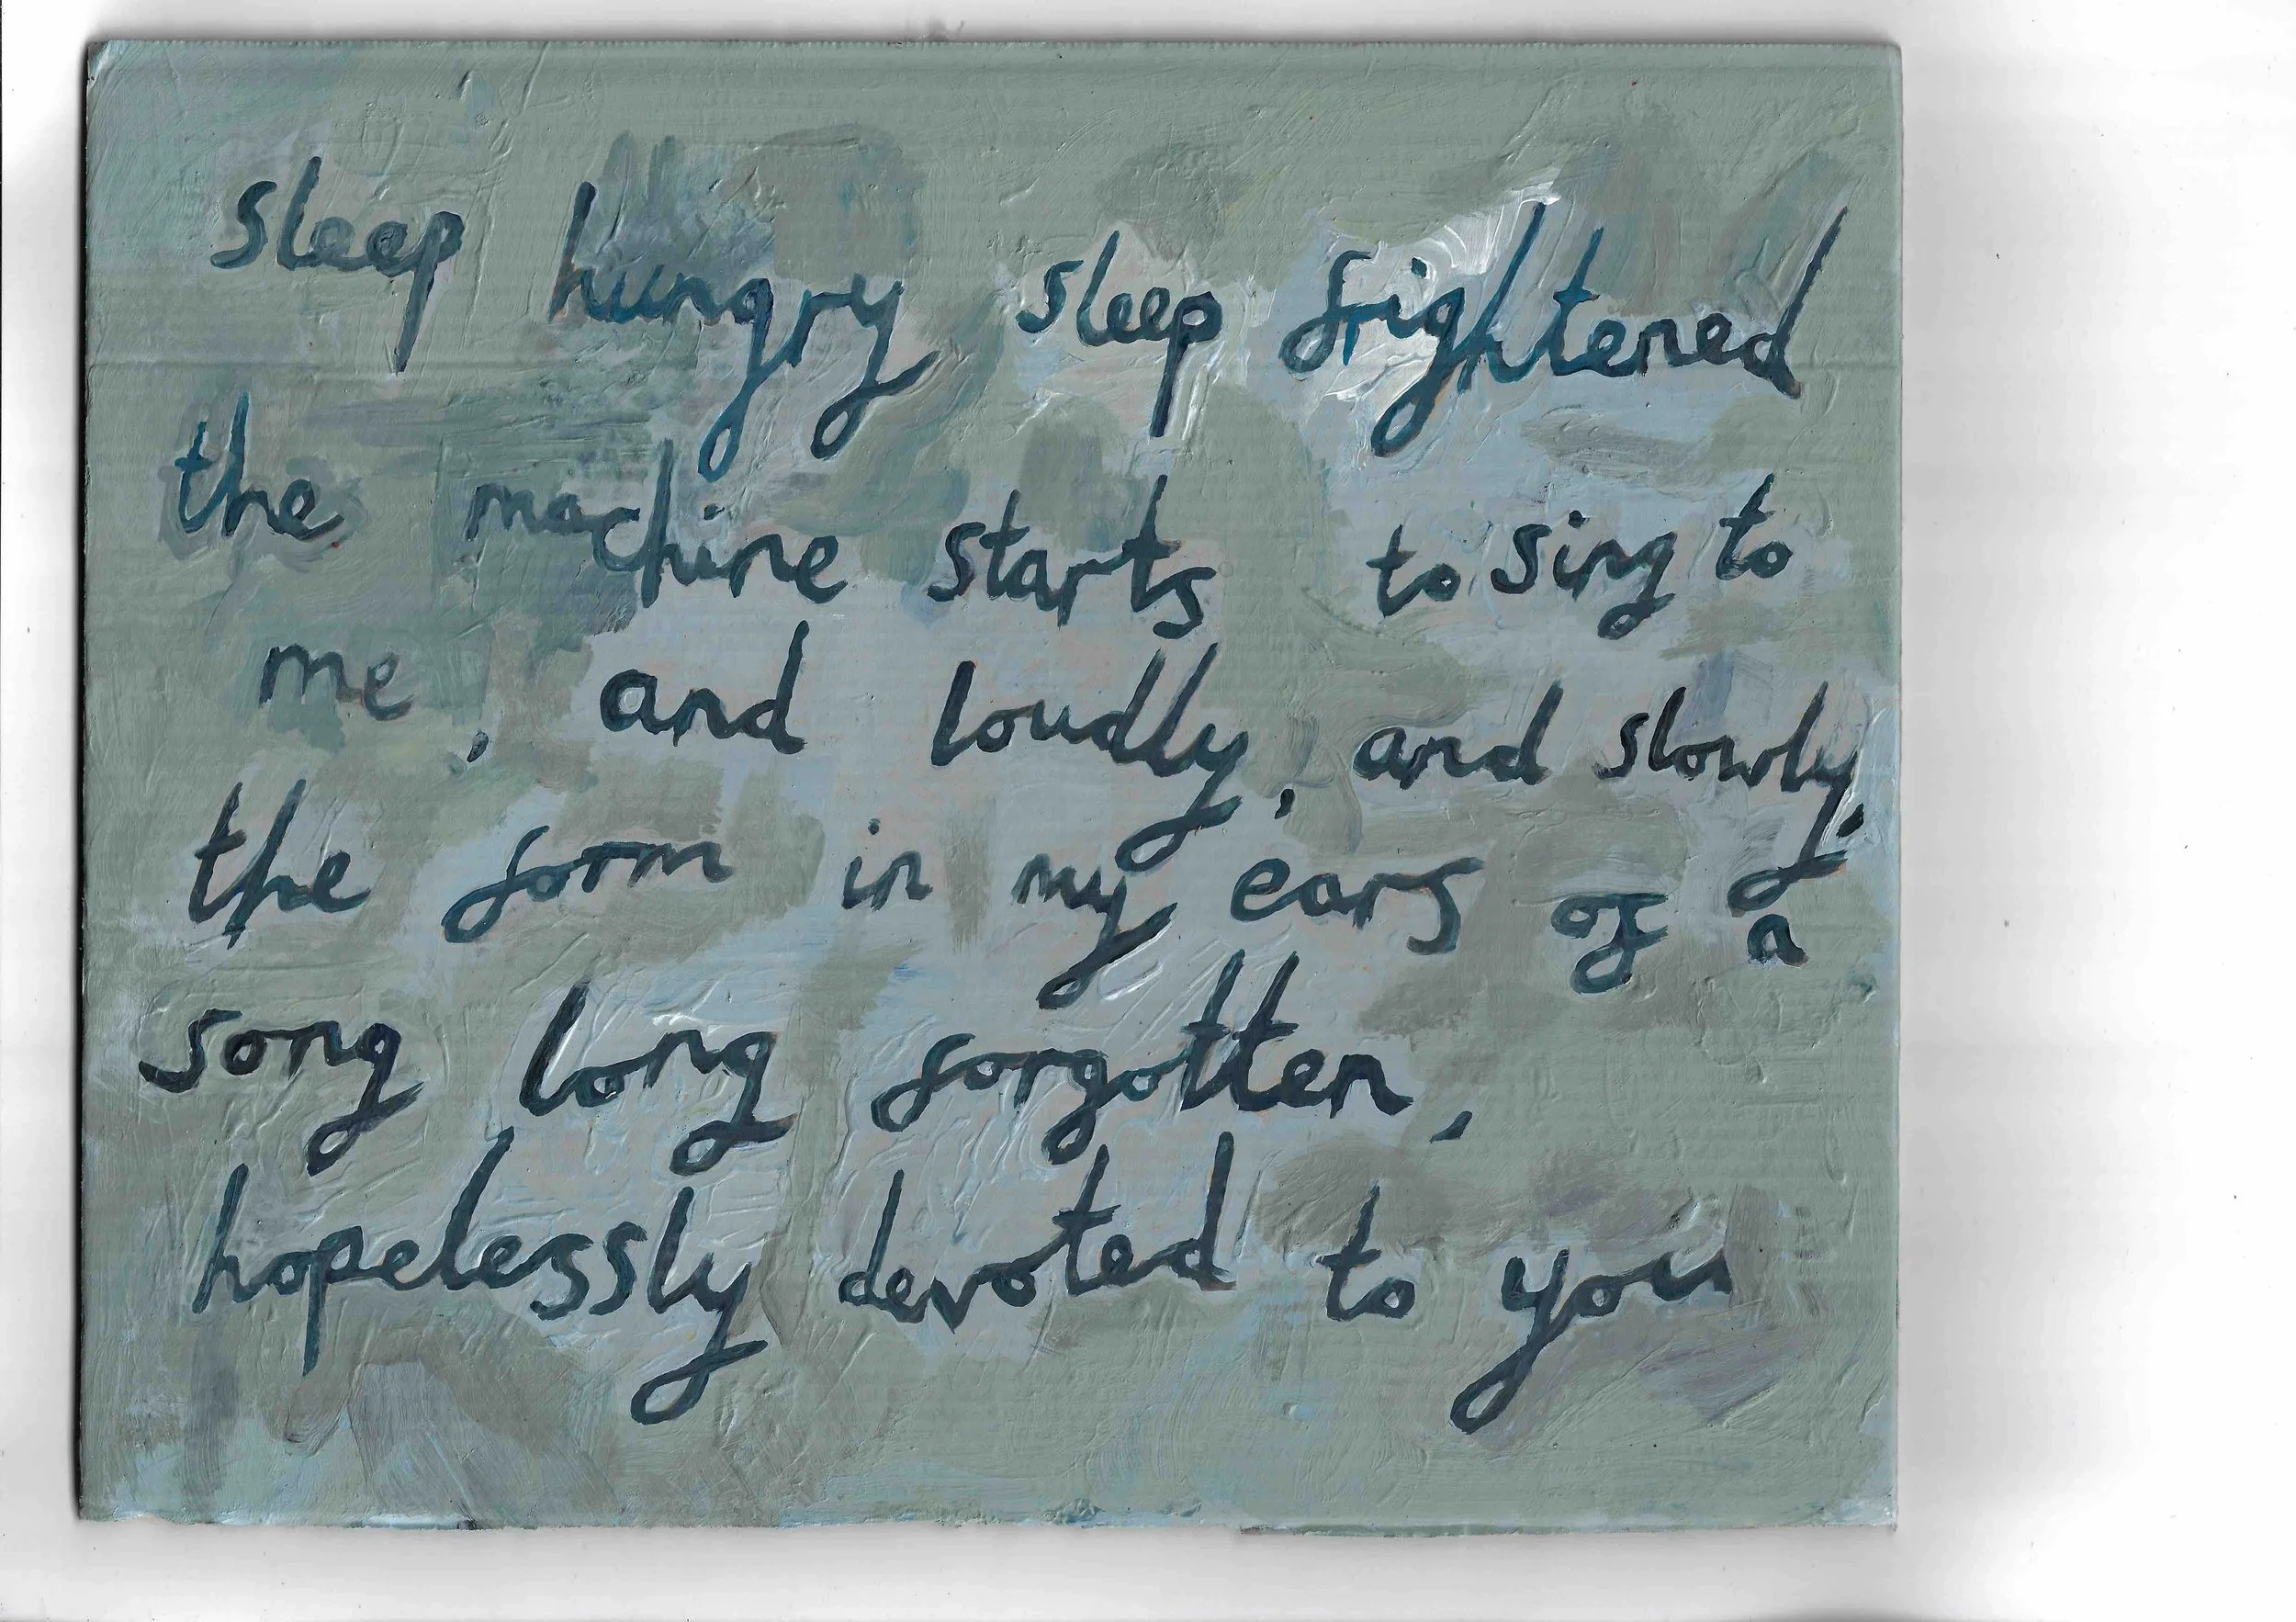 sleep hungry sleep frightened
the machine starts to sing to
me, and loudly, and slowly,
the form in my ears of a
song long forgotten,
hopelessly devoted to you